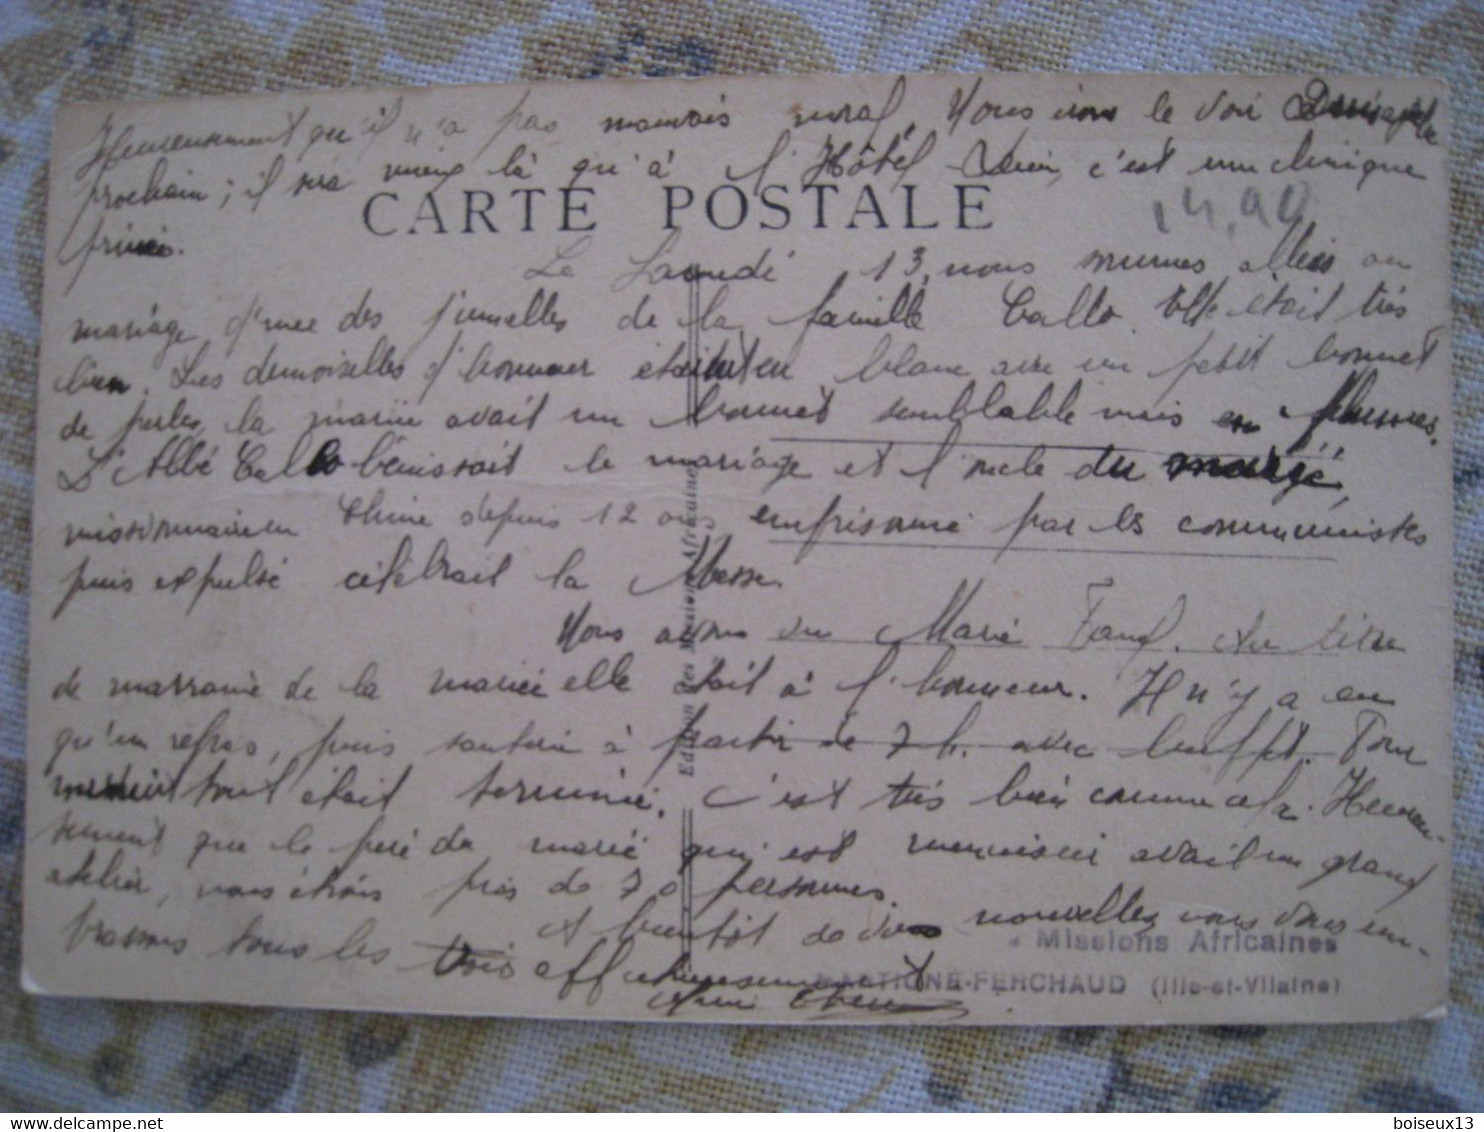 Heureusement qu'il n'a pas mauvais moral. Nous irons le voir Dimanche
prochain ; il sera mieux là qu'à l'Hôtel-Dieu, c'est une clinique
privée.
CARTE POSTALE
14,90
Le Samedi 13, nous sommes allés au
mariage d'une des jumelles de la famille Callo. Elle était très
bien. Les demoiselles d'honneur étaient en blanc avec un petit bonnet
de perles, la mariée avait un bonnet semblable mais en plumes.
L'Abbé Callo bénissait le mariage et l'oncle du marié,
missionnaire en Chine depuis 12 ans, emprisonné par les communistes
puis expulsé célébrait la Messe.
Nous avons vu Marie Au titre
de marraine de la mariée elle était à l'honneur. Il n'y a eu
qu'un repas, puis sauterie à partir de 7 h. avec buffet. Pour
minuit tout était terminé. C'est très bien comme cela. Heureu-
sement que le père du marié qui est menuisier avait un grand
atelier, nous étions près de 70 personnes.
A bientôt de vos nouvelles, nous vous em-
brassons tous les trois affectueusement
Edition des Missions Africaines
Missions Africaines
MARTIGNE-FERCHAUD (Ille-et-Vilaine)
boiseux13